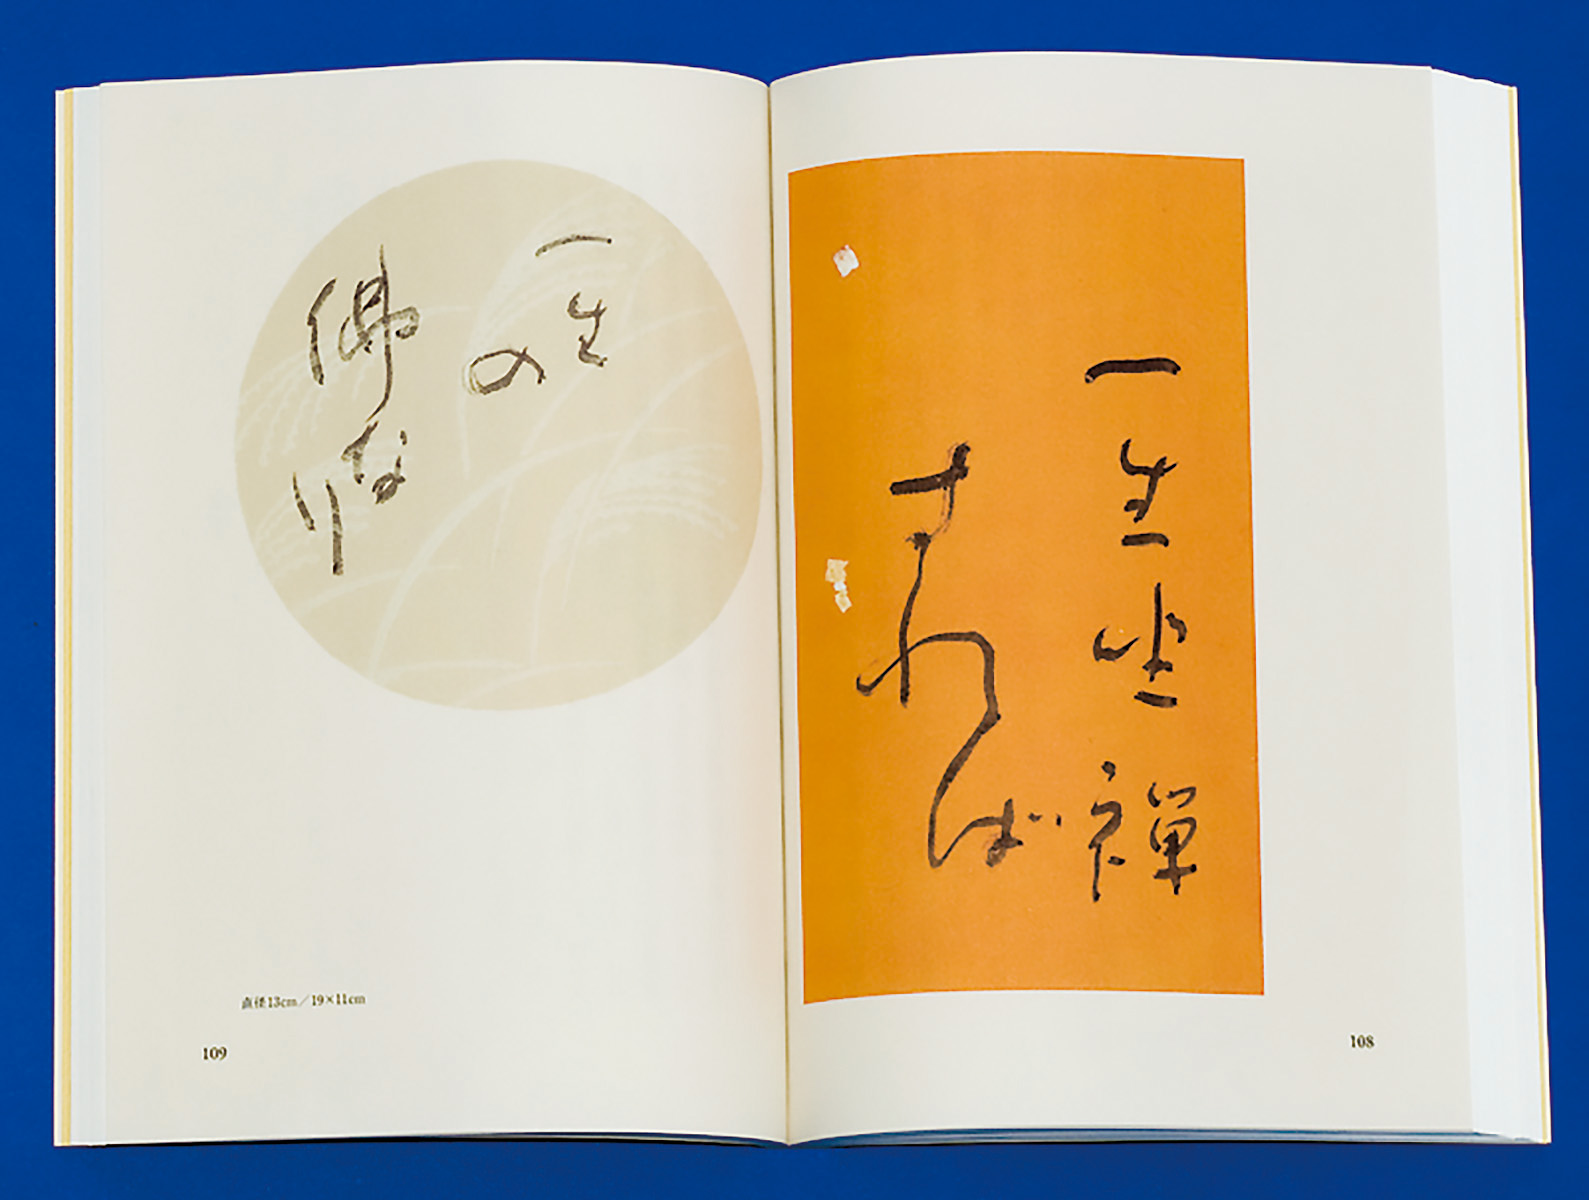 一生坐禅
すれば
108
一生の
佛なり
直径13cm／19×11cm
109